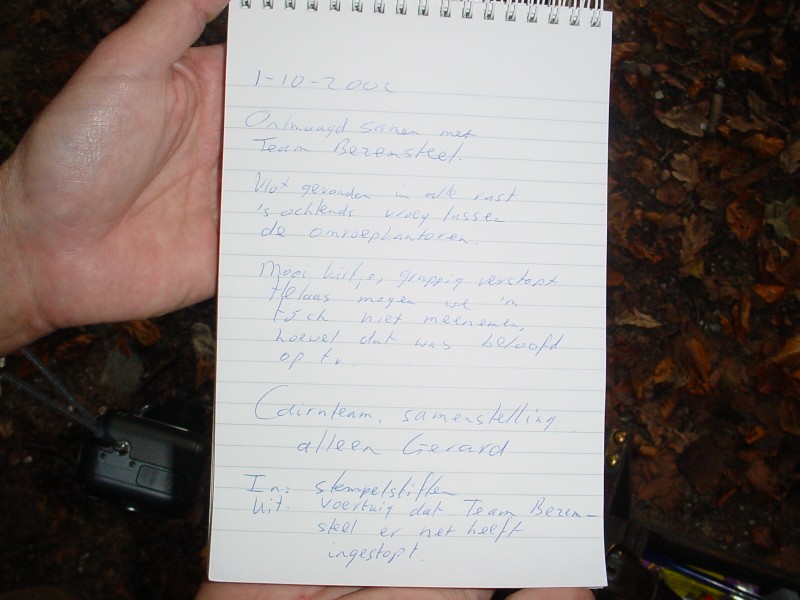 1-10-2002
Ontmaagd samen met
Team Bezemsteel.
Vlot gevonden in alle rust
's ochtends vroeg tussen
de omroepkantoren.
Mooi kistje, grappig verstopt
Helaas mogen we 'm
toch niet meenemen,
hoewel dat was beloofd
op tv.
Cairnteam, samenstelling
alleen Gerard
In: stempelstiften
Uit: voertuig dat Team Bezem-
steel er net heeft
ingestopt.